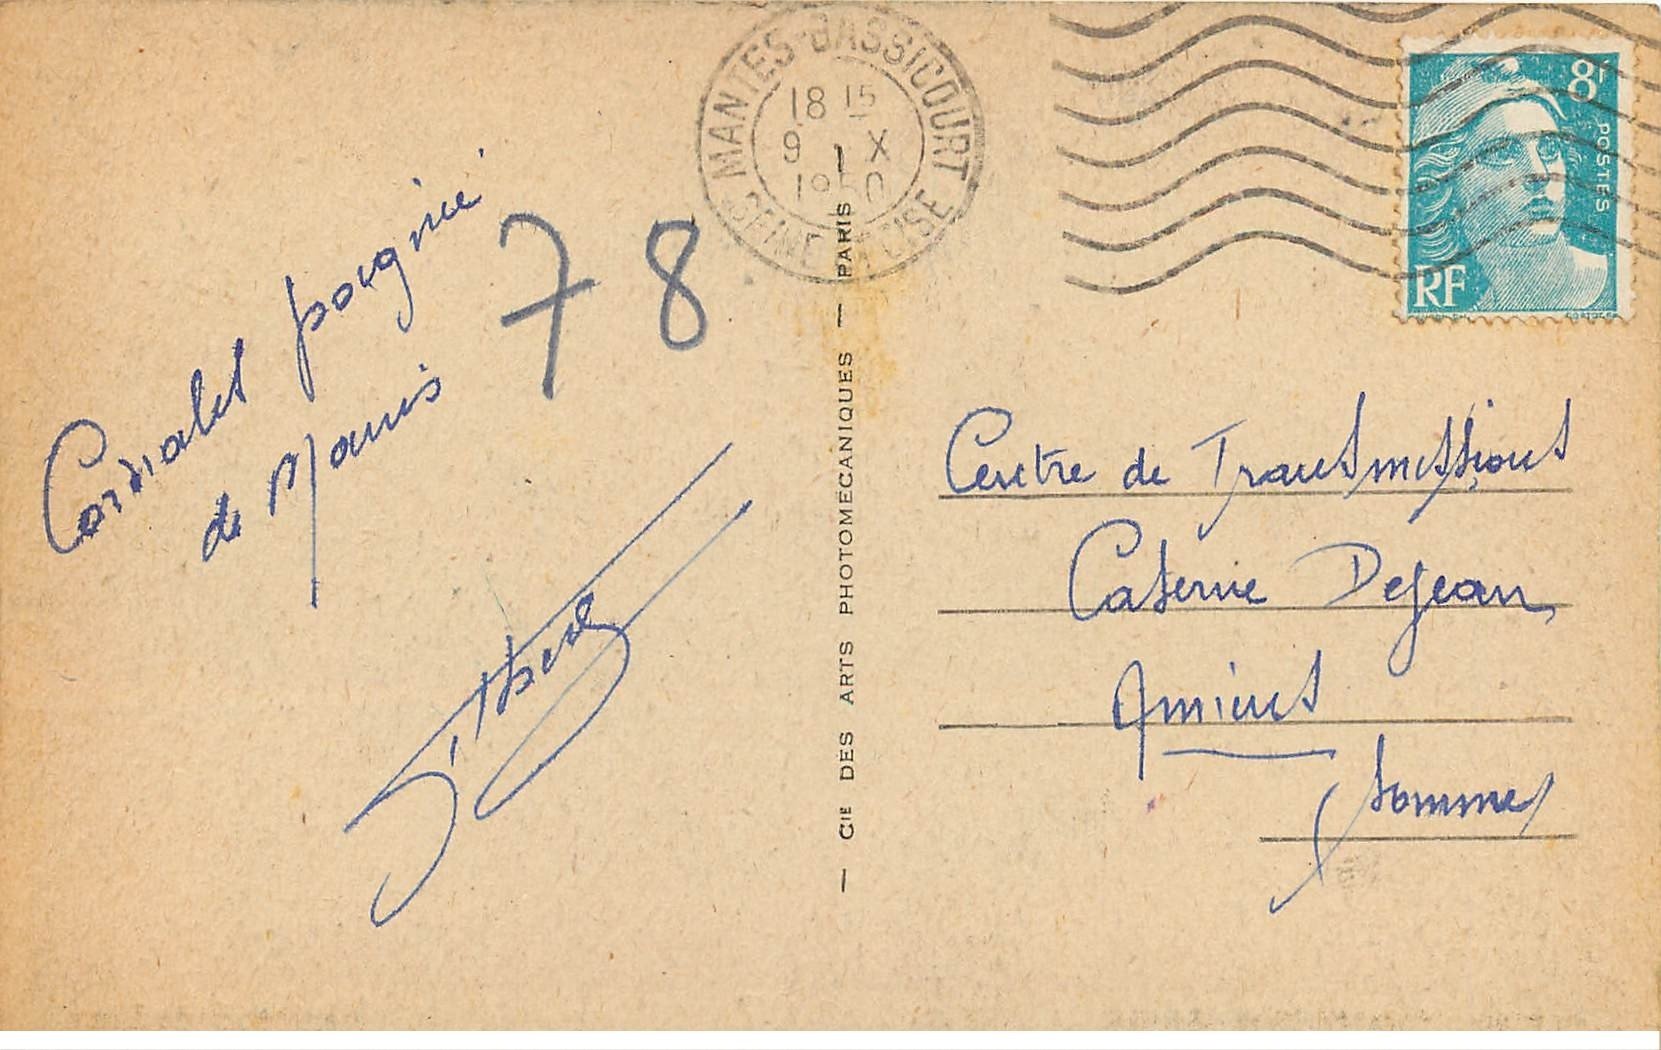 Cordiales poignée
de Mains
78
MANTES-GASSICOURT
18 15
9 X
1950
SEINE ET OISE
8F
POSTES
RF
— CIE DES ARTS PHOTOMÉCANIQUES — PARIS
Centre de Transmissions
Caserne Dejean
Amiens
Somme